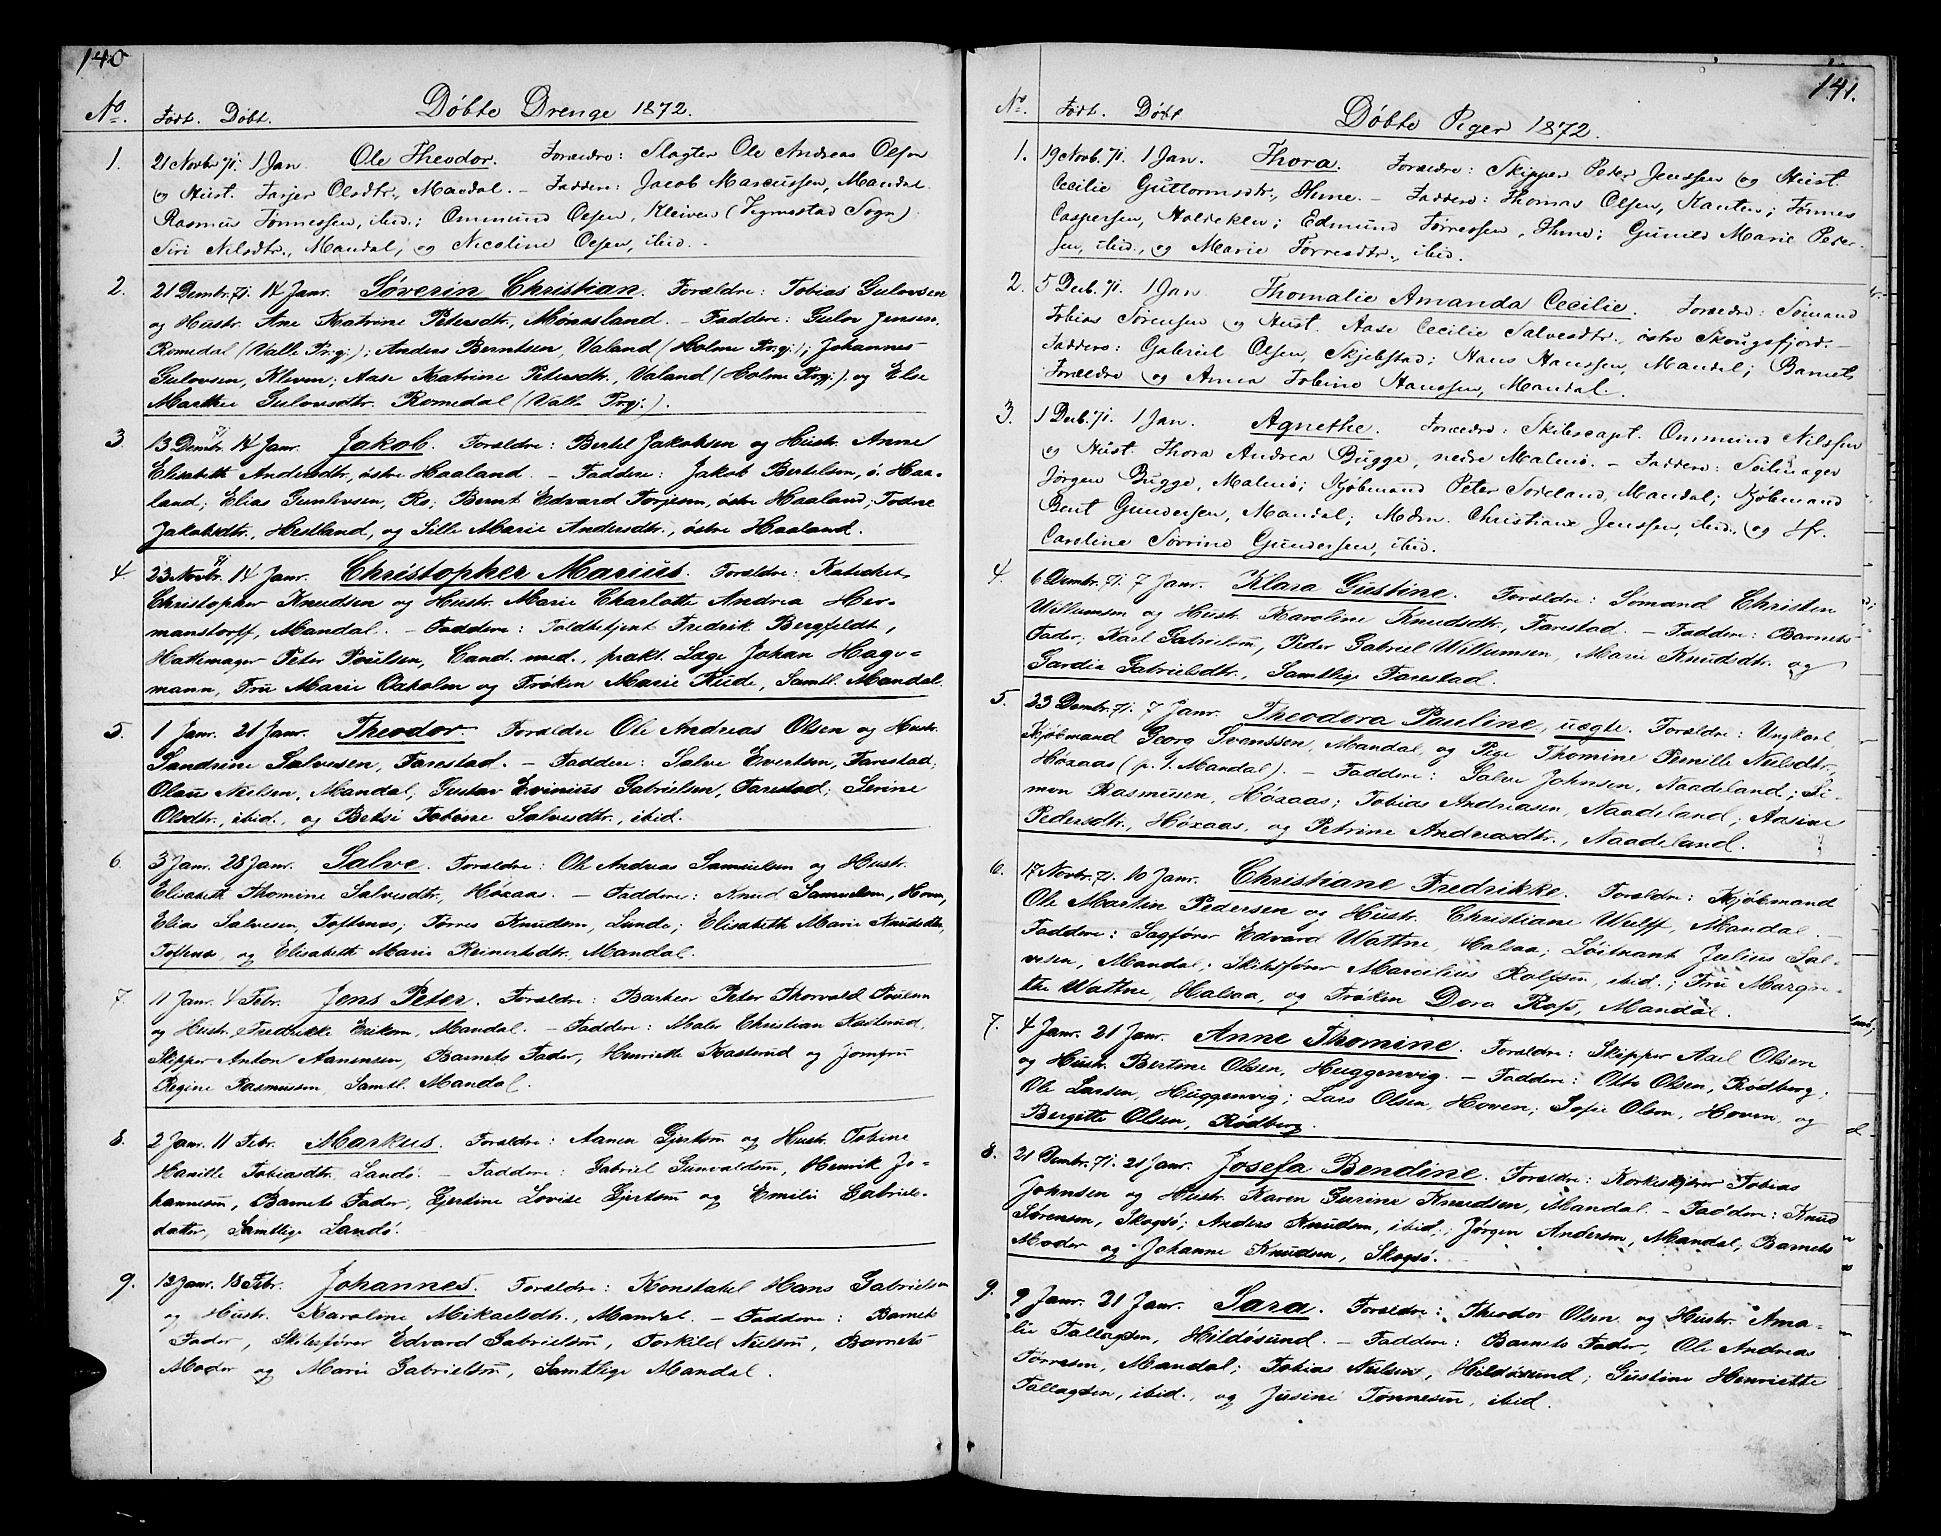 140
No. Født. Døbt. Døbte Drenge 1872.
1. 21 Novbr. 71. 1 Jan. Ole Theodor. Forældre: Slagter Ole Andreas Olsen
og Hust. Tarjer Olsdtr., Mandal. – Faddere: Jacob Marcussen, Mandal.
Rasmus Tønnessen, ibid.; Ommund Olsen, Kleiven (Vigmostad Sogn).
Siri Nilsdtr., Mandal, og Nicoline Olsen, ibid. –
2. 21 Dembr. 71. 14 Janr. Søverin Christian. Forældre: Tobias Gulovsen
og Hustr. Ane Katrine Petersdtr., Mønesland. – Faddere: Gulov Jensen,
Romedal (Valle Prgj:); Anders Berntsen, Valand (Holme Prgj:); Johannes
Gulovsen, Kleven; Aase Katrine Petersdtr., Valand (Holme Prgj:). og Else
Marthe Gulovsdtr. Romedal (Valle Prgj:).
3. 13 Dembr. 71 14 Janr. Jakob. Forældre: Bertel Jakobsen og Hustr. Anne
Elisabeth Andersdtr, østre Haaland. – Faddere: Jakob Bertelsen, ø. Haa-
land; Elias Gunlevsen, Ro; Bernt Edvard Torjesen, østre Haaland; Todne
Jakobsdtr., Hesland, og Sille Marie Andersdtr., østre Haaland.
4 23 Novbr. 71 14 Janr. Christopher Marius. Forældre: Katichet,
Christopher Knudsen og Hustr. Marie Charlotte Andrea Her-
manstorff, Mandal. – Faddere: Toldbetjent Fredrik Bergfeldt,
Hattemager Peter Poulsen, Cand. med., prakt. Læge Johan Hage-
mann, Fru Marie Oxholm og Frøken Marie Kude, Samtl. Mandal.
5. 1 Janr. 21 Janr. Theodor. Forældre Ole Andreas Olsen og Hustr.
Sandrine Salvesen, Farestad. – Faddere: Salve Evertsen, Farestad;
Olaus Nielsen, Mandal, Gustav Evinius Gabrielsen, Farestad; Serine
Olsdtr., ibid., og Betsi Tobine Salvesdtr., ibid.
6. 3 Janr. 28 Janr. Salve. Forældre: Ole Andreas Samuelsen og Hustr.
Elisabeth Thomine Salvesdtr., Høxaas. – Faddere: Knud Samuelsen, Hoven,
Elias Salvesen, Toftenes; Tørres Knudsen, Lunde; Elisabeth Marie Knudsdtr,
Toftenes, og Elisabeth Marie Reinertsdtr., Mandal.
7. 11 Janr. 4 Febr. Jens Peter. Forældre: Barker Peter Thorvald Poulsen
og Hustr. Fredrikke Eriksen, Mandal. – Faddere: Maler Christian Kasterud,
Skipper Anton Aanensen, Barnets Fader, Henriette Kasterud og Jomfru
Regine Rasmussen, Samtl. Mandal.
8. 2 Janr. 11 Febr. Markus. Forældre: Aanen Gjertsen og Hustr. Tobine
Hanille Tobiasdtr. Landø. – Faddere: Gabriel Gunvaldsen, Henrik Jo-
hannesen, Barnets Fader, Gjertine Lovise Gjertsen og Emilie Gabriels-
datter, Samtlige Landø.
9. 12 Janr. 18 Febr. Johannes. Forældre: Konstabel Hans Gabrielsen
og Hustr. Karoline Mikaelsdtr., Mandal. – Faddere: Barnets
Fader, Skibsfører Edvard Gabrielsen, Torkild Nielsen, Barnets
Moder og Marie Gabrielsen, Samtlige Mandal.
141.
No. Født. Døbt Døbte Piger 1872.
1. 19 Novb. 71. 1 Jan. Thora. Forældre: Skipper Peter Jenssen og Hust.
Cecilie Guttormsdtr., Ihme. – Faddere: Thomas Olsen, Kanten; Tønnes
Caspersen, Holdeklev; Edmund Tørressen, Ihme; Gunild Marie Peter-
sen, ibid., og Marie Torresdtr., ibid.
2. 5 Decb. 71. 1 Jan. Thomalie Amanda Cecilie. Forældre: Sømand
Tobias Sørensen og Hust. Aase Cecilie Salvesdtr., østre Skougsfjord. –
Faddere: Gabriel Olsen, Skjebstad; Hans Hanssen, Mandal; Barnets
Forældre og Anna Tobine Hanssen, Mandal.
3. 1 Decb. 71. 1 Jan. Agnethe. Forældre: Skibscapt. Ommund Nilssen
og Hust. Thora Andrea Bugge, nedre Malmø. – Faddere: Seilmager
Jørgen Bugge, Malmø; Kjøbmand Peter Soreland, Mandal; Kjøbmand
Bent Gundersen, Mandal; Mdm. Christiane Jenssen, ibid. og Jfr.
Caroline Sovrine Gundersen, ibid.
4. 6 Dembr. 71. 7 Janr. Klara Gustine. Forældre: Sømand Christen
Willumsen og Hustr. Karoline Knudsdtr., Farestad. – Faddere: Barnets
Fader; Karl Gabrielsen, Peder Gabriel Willumsen, Marie Knudsdtr. og
Gardia Gabrielsdtr., Samtlige Farestad.
5. 23 Dembr. 71. 7 Janr. Theodora Pauline, uægte. Forældre: Ungkarl,
Kjøbmand Georg Svenssen, Mandal, og Pige Thomine Pernille Nielsdtr.
Høxaas (p. t. Mandal). – Faddere: Salve Johnsen, Naadeland; Si-
mon Rasmusen, Høxaas; Tobias Andreasen, Naadeland; Aasine
Pedersdtr., Høxaas, og Petrine Andreasdtr., Naadeland.
6. 17 Novbr. 71. 10 Janr. Christiane Fredrikke. Forældre: Kjøbmand
Ole Martin Pedersen og Hustr. Christiane Wulff, Mandal. –
Faddere: Sagfører Edvard Wattne, Halsaa; Løitnant Julius Sal-
vesen, Mandal; Skibsfører Marcilius Rolfsen, ibid.; Fru Margre-
the Wattne, Halsaa, og Frøken Dora Ross, Mandal.
7. 4 Janr. 21 Janr. Anne Thomine. Forældre: Skipper Axel Olsen
og Hustr. Bertine Olsen, Huggenvig. – Faddere: Otto Olsen, Rødberg;
Ole Larsen, Huggenvig; Lars Olsen, Hoven; Sofie Olsen, Hoven, og
Bergitte Olsen, Rødberg.
8. 21 Dembr. 71. 21 Janr. Josefa Bendine. Forældre: Korkeskjærer Tobias
Johnsen og Hustr. Karen Gurine Knudsen, Mandal. – Faddere: Knud
Sørensen, Skogsø; Anders Knudsen, ibid.; Jørgen Andersen, Mandal; Barnets
Moder og Johanne Knudsen, Skogsø.
9. 9 Janr. 21 Janr. Sara. Forældre: Theodor Olsen og Hustr. Ama-
lie Tallagsen, Hildøsund. – Faddere: Barnets Fader, Ole Andreas
Tørresen, Mandal; Tobias Nielsen, Hildøsund; Gustine Henriette
Tallagsen, ibid., og Jusine Tønnesen, ibid.